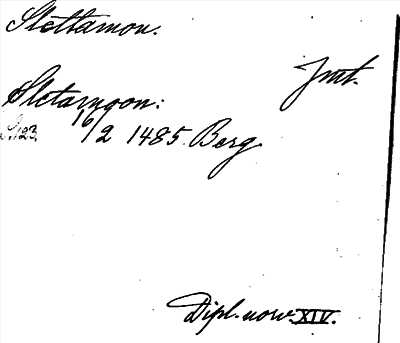 Slettamon.
Jmt.
Sletamoon:
S. 123. 16/2 1485. Berg
Dipl. norv. XIV.